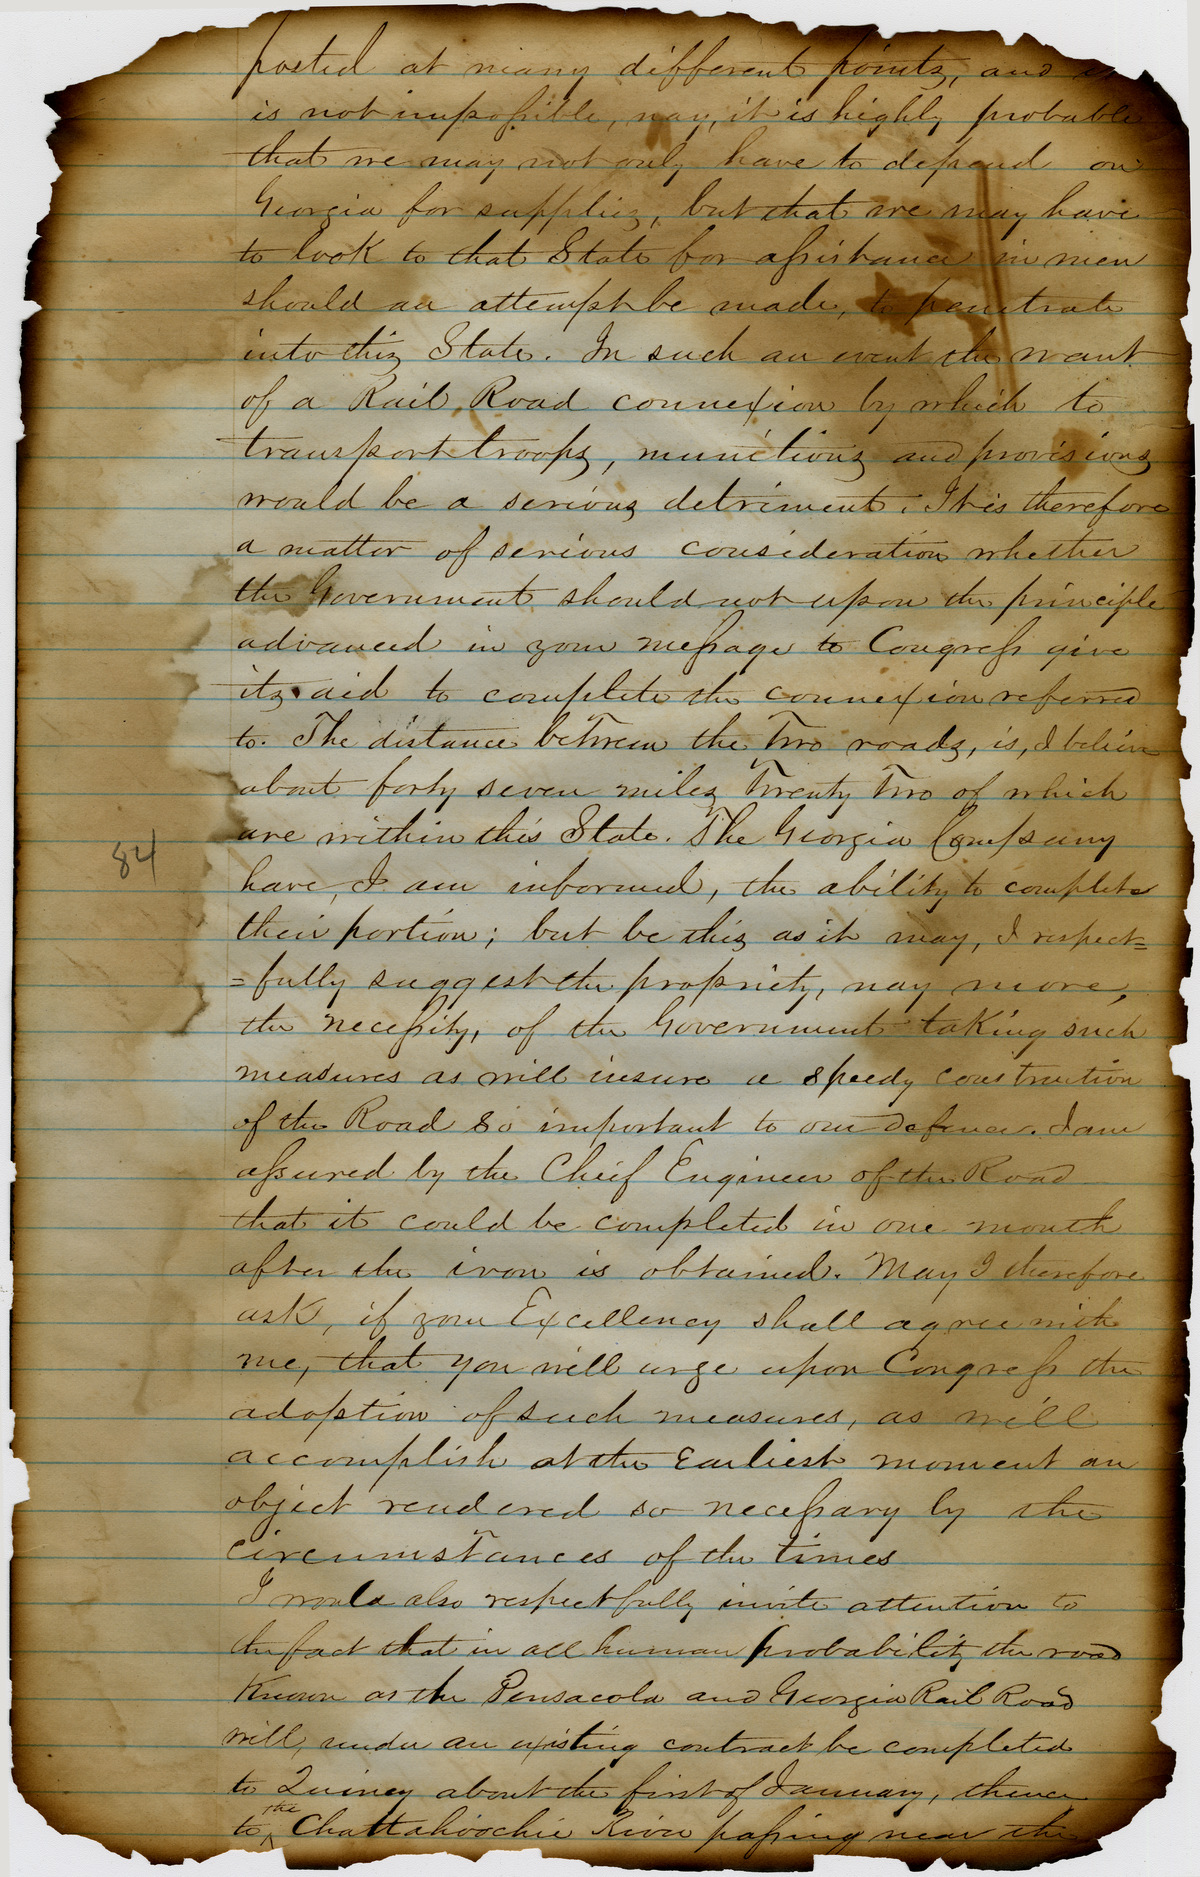 posted at many different points, and
is not impossible, nay, it is highly probable
that we may not only have to depend on
Georgia for supplies, but that we may have
to look to that State for assistance in men
should an attempt be made, to penetrate
into this State. In such an event the want
of a Rail Road connexion by which to
transport troops, munitions and provisions
would be a serious detriment. It is therefore
a matter of serious consideration whether
the Government should not upon the principle
advanced in your message to Congress give
its aid to complete the connexion referred
to. The distance between the Two roads, is, I believe
about forty seven miles Twenty Two of which
are within this State. The Georgia Company
84
have, I am informed, the ability to complete
their portion; but be this as it may, I respect=
=fully suggest the propriety, nay more,
the necessity, of the Government taking such
measures as will insure a speedy construction
of the Road so important to our defence. I am
assured by the Cheif Engineer of the Road
that it could be completed in one month
after the iron is obtained. May I therefore
ask, if your Excellency shall agree with
me, that you will urge upon Congress the
adoption of such measures, as will
accomplish at the Earliest moment an
object rendered so necessary by the
circumstances of the times
I would also respectfully invite attention to
the fact that in all human probability the road
Known as the Pensacola and Georgia Rail Road
will, under an existing contract be completed
to Quincy about the first of January, thence
to the Chattahoochie River passing near the